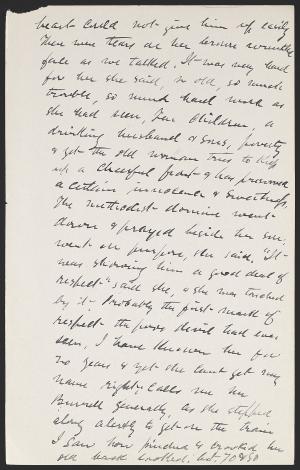 heart could not give him up easily
There were tears on her brown wrinkled
face as we talked. It was very hard
for her she said, so old, so much
trouble, so much hard work as
she had seen, ten children, a
drinking husband & sons, poverty
& yet the old woman tries to keep
up a cheerful front & has preserved
a certain innocence & sweetness.
The methodist dominie went
down & prayed beside her son,
went on purpose, she said, "It
was showing him a good deal of
respect" said she, & she was touched
by it. Probably the first mark of
respect the poor devil had ever
seen. I have known her for
20 years & yet she can't get my
name right; calls me Mr
Burrell generally. As she stepped
along alertly to get on the train
I saw how pinched & crooked her
old back looked.